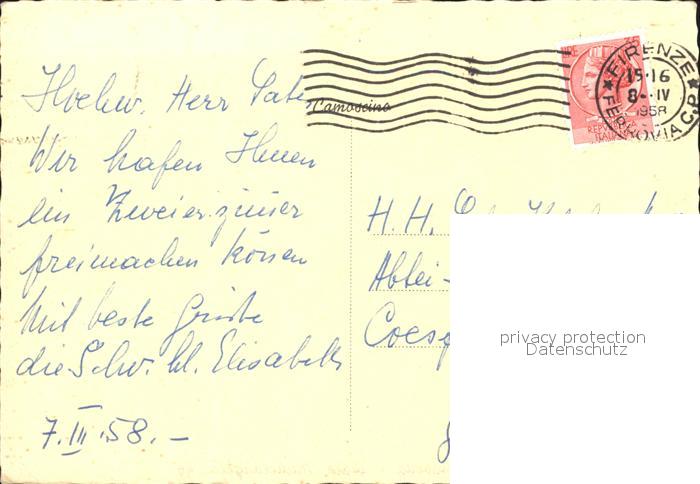 Hochw. Herr Pater
Wir hafen Ihnen
ein Zweierzimer
freimachen können
Mit beste Grüße
die Schw. hl. Elisabeth
7.III.58.–
Camoscina
FIRENZE
15·16
8·–IV
1958
FERROVIA C.P.
35
REPVBBLICA
ITALIANA
H. H.
Abtei-
Coesf
privacy protection
Datenschutz